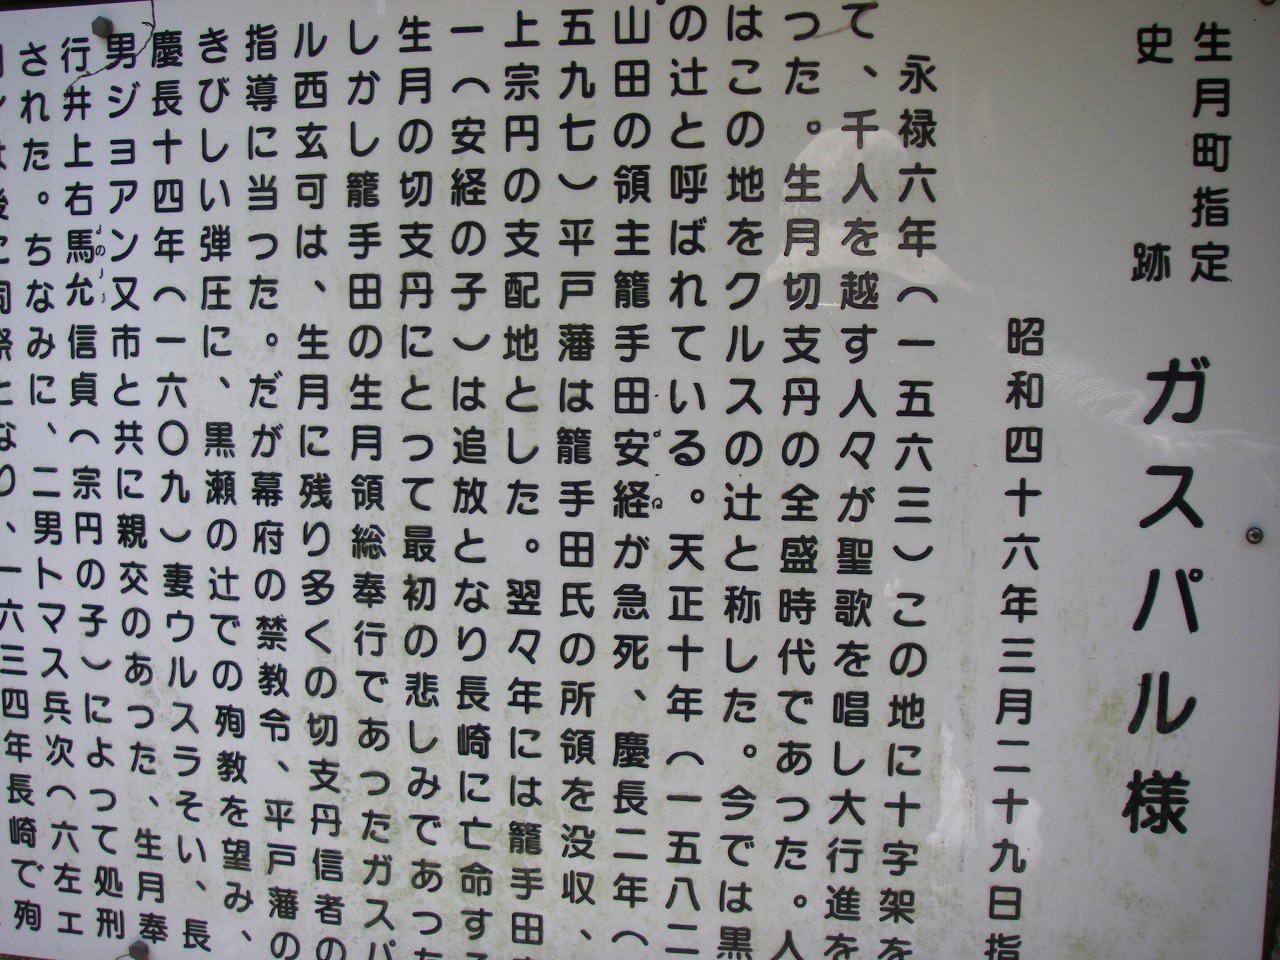 生月町指定
史跡 ガスパル様
昭和四十六年三月二十九日指
永禄六年（一五六三）この地に十字架を
て、千人を越す人々が聖歌を唱し大行進を
つた。生月切支丹の全盛時代であった。人
はこの地をクルスの辻と称した。今では黒
の辻と呼ばれている。天正十年（一五八二
山田の領主籠手田安経が急死、慶長二年（
五九七）平戸藩は籠手田氏の所領を没収、
上宗円の支配地とした。翌々年には籠手田
一（安経の子）は追放となり長崎に亡命す
生月の切支丹にとって最初の悲しみであった
しかし籠手田の生月領総奉行であったガスパ
ル西玄可は、生月に残り多くの切支丹信者の
指導に当った。だが幕府の禁教令、平戸藩の
きびしい弾圧に、黒瀬の辻での殉教を望み、
慶長十四年（一六〇九）妻ウルスラそい、長
男ジョアン又市と共に親交のあった、生月奉
行井上右馬允信貞（宗円の子）によって処刑
された。ちなみに、二男トマス兵次（六左エ
は後に司祭となり、一六三四年長崎で殉